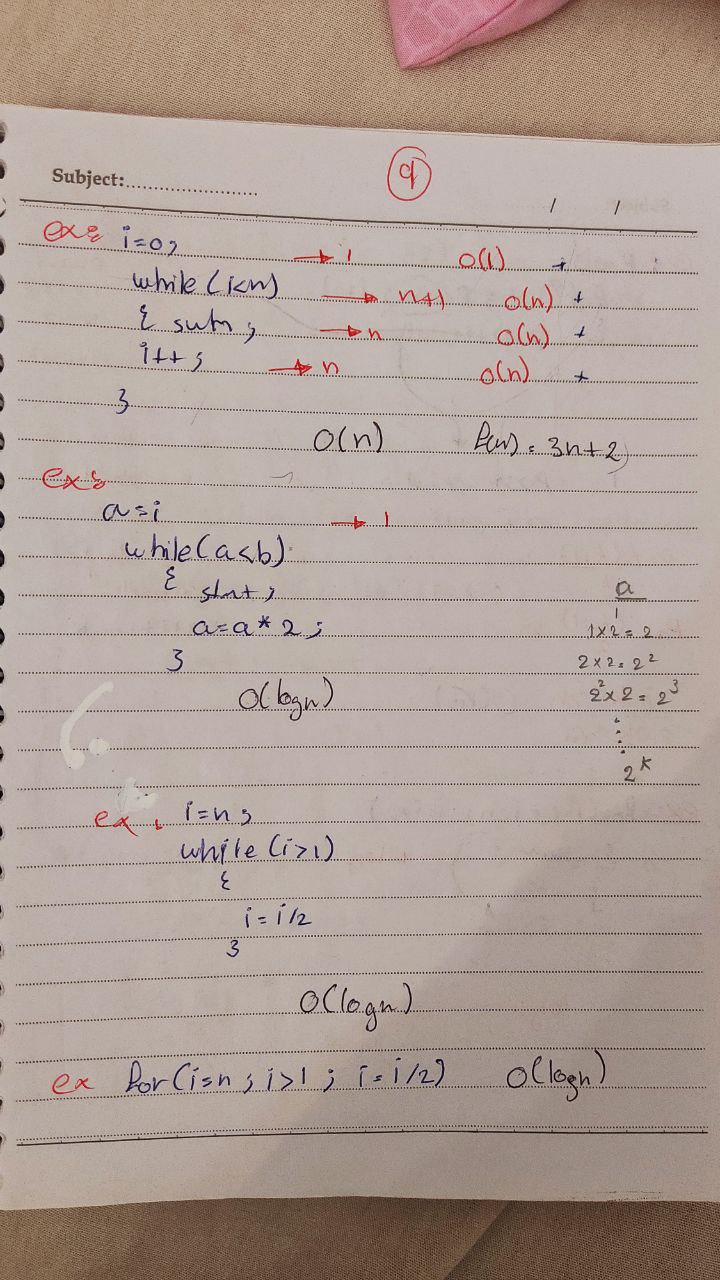 Subject:........................
9
/ /
ex: i=0; → 1 O(1) +
while (i<n) → n+1 O(n) +
{ stm; → n O(n) +
i++; → n O(n) +
}
O(n) f(n) = 3n+2
ex:
a=i → 1
while(a<b)
{ stmt;
a=a*2;
}
O(logn)
a
1
1x2=2
2x2=2²
2²x2=2³
2^k
ex: i=n;
while (i>1)
{
i=i/2
}
O(logn)
ex for(i=n; i>1; i=i/2) O(logn)